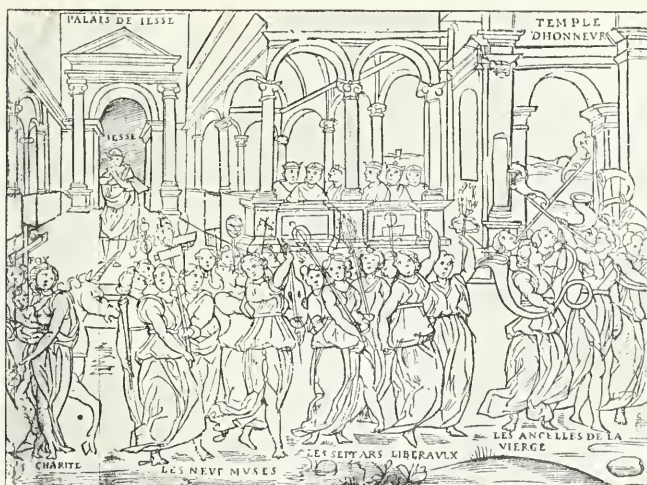 PALAIS DE IESSE
TEMPLE
DHONNEVR
IESSE
FOY
CHARITE
LES NEVF MVSES
LES SEPT ARS LIBERAVLX
LES ANCELLES DE LA
VIERGE